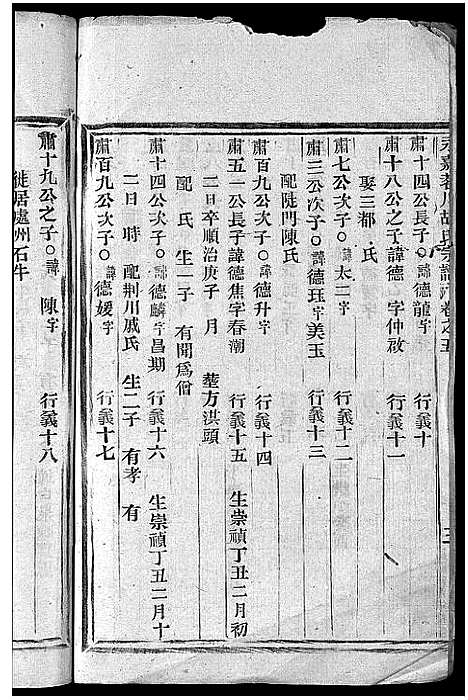 永嘉 川胡氏宗譜 卷之五
肅十四公長子○諱德龍字 行義十
肅十八公之子諱德 字仲攽 行義十一
娶三都 氏
肅七公次子○諱太二字 行義十二
肅三公次子○諱德珏字美玉 行義十三
配陡門陳氏
肅百九公次子○諱德升字 行義十四
肅五一公長子諱德焦字春潮 行義十五 生崇禎丁丑二月初
二日卒順治庚子 月 塟方洪頭
配 氏 生一子 有聞爲僧
肅十四公次子○諱德麟字昌期 行義十六 生崇禎丁丑二月十
二日時 配荆川戚氏 生二子 有孝 有
肅百九公次子○諱德媛字 行義十七
肅十九公之子○諱 陳字 行義十八
徙居處州石牛